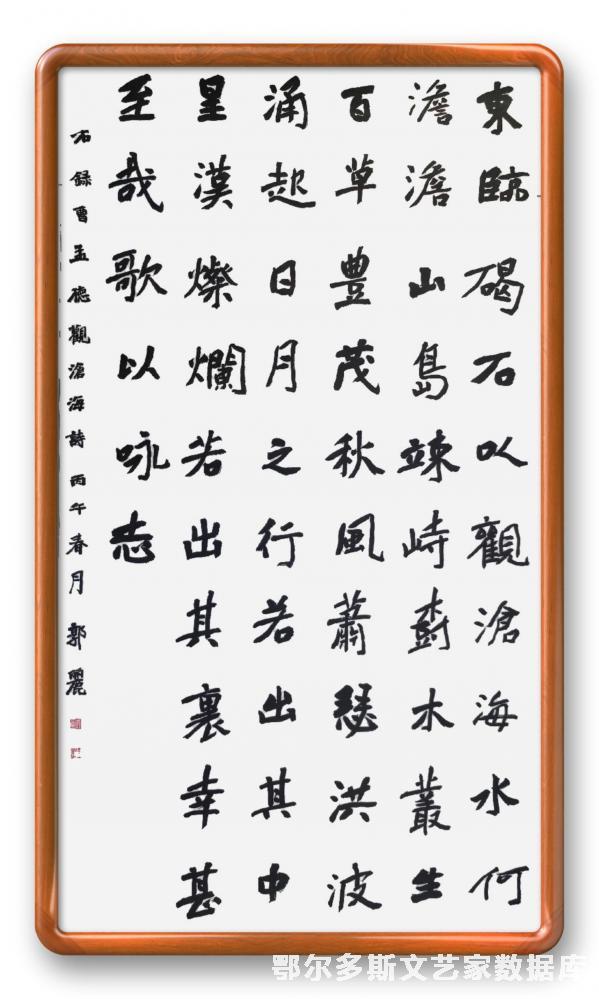 東臨碣石以觀滄海水何
澹澹山島竦峙樹木叢生
百草豊茂秋風蕭瑟洪波
涌起日月之行若出其中
星漢燦爛若出其裏幸甚
至哉歌以咏志
右録曹孟德觀滄海詩丙午春月郭麗
鄂尔多斯文艺家数据库